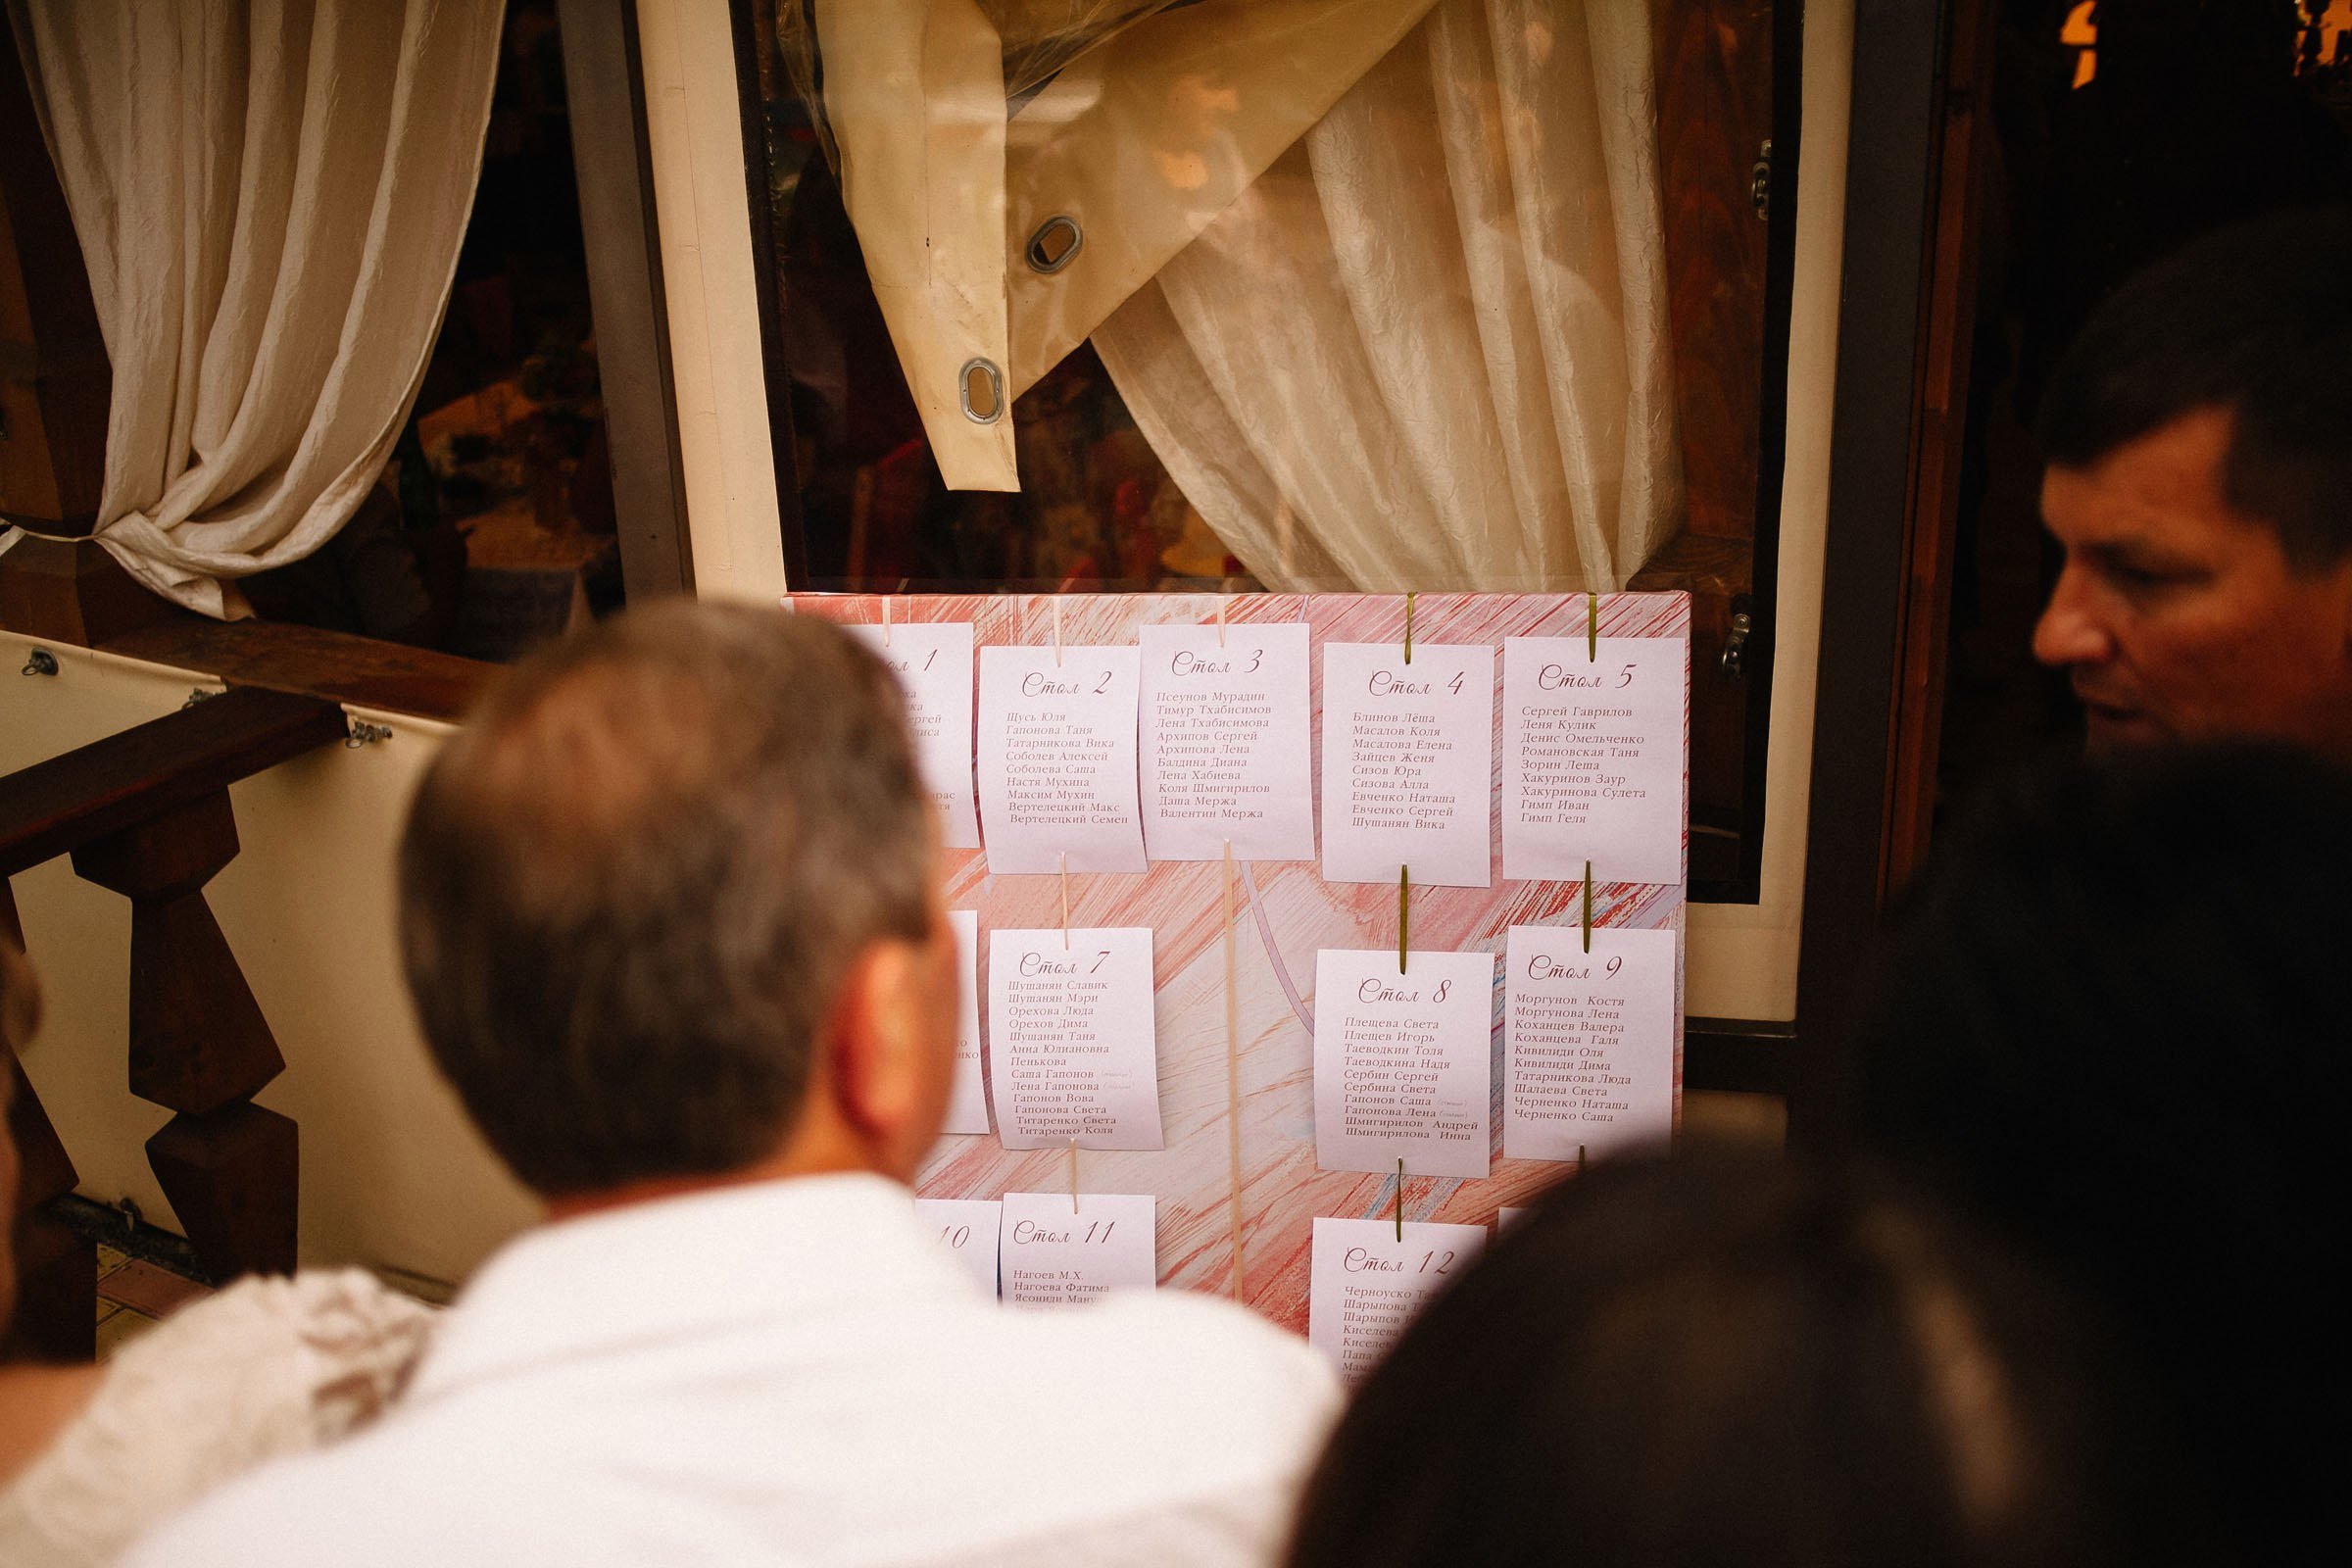 1
Сергей
Стол 2
Шусь Юля
Гапонова Таня
Татарникова Вика
Соболев Алексей
Соболева Саша
Настя Мухина
Максим Мухин
Вертелецкий Макс
Вертелецкий Семен
Стол 3
Псеунов Мурадин
Тимур Тхабисимов
Лена Тхабисимова
Архипов Сергей
Архипова Лена
Балдина Диана
Лена Хабиева
Коля Шмигирилов
Даша Мержа
Валентин Мержа
Стол 4
Блинов Лёша
Масалов Коля
Масалова Елена
Зайцев Женя
Сизов Юра
Сизова Алла
Евченко Наташа
Евченко Сергей
Шушанян Вика
Стол 5
Сергей Гаврилов
Леня Кулик
Денис Омельченко
Романовская Таня
Зорин Леша
Хакуринов Заур
Хакуринова Сулета
Гимп Иван
Гимп Геля
Стол 7
Шушанян Славик
Шушанян Мэри
Орехова Люда
Орехов Дима
Шушанян Таня
Анна Юлиановна
Пенькова
Саша Гапонов
Лена Гапонова
Гапонов Вова
Гапонова Света
Титаренко Света
Титаренко Коля
Стол 8
Плещева Света
Плещев Игорь
Таеводкин Толя
Таеводкина Надя
Сербин Сергей
Сербина Света
Гапонов Саша
Гапонова Лена
Шмигирилов Андрей
Шмигирилова Инна
Стол 9
Моргунов Костя
Моргунова Лена
Коханцев Валера
Коханцева Галя
Кивилиди Оля
Кивилиди Дима
Татарникова Люда
Шалаева Света
Черненко Наташа
Черненко Саша
10
Стол 11
Нагоев М.Х.
Нагоева Фатима
Ясониди
Стол 12
Черноуско
Шарыпова
Шарыпов
Киселева
Папа